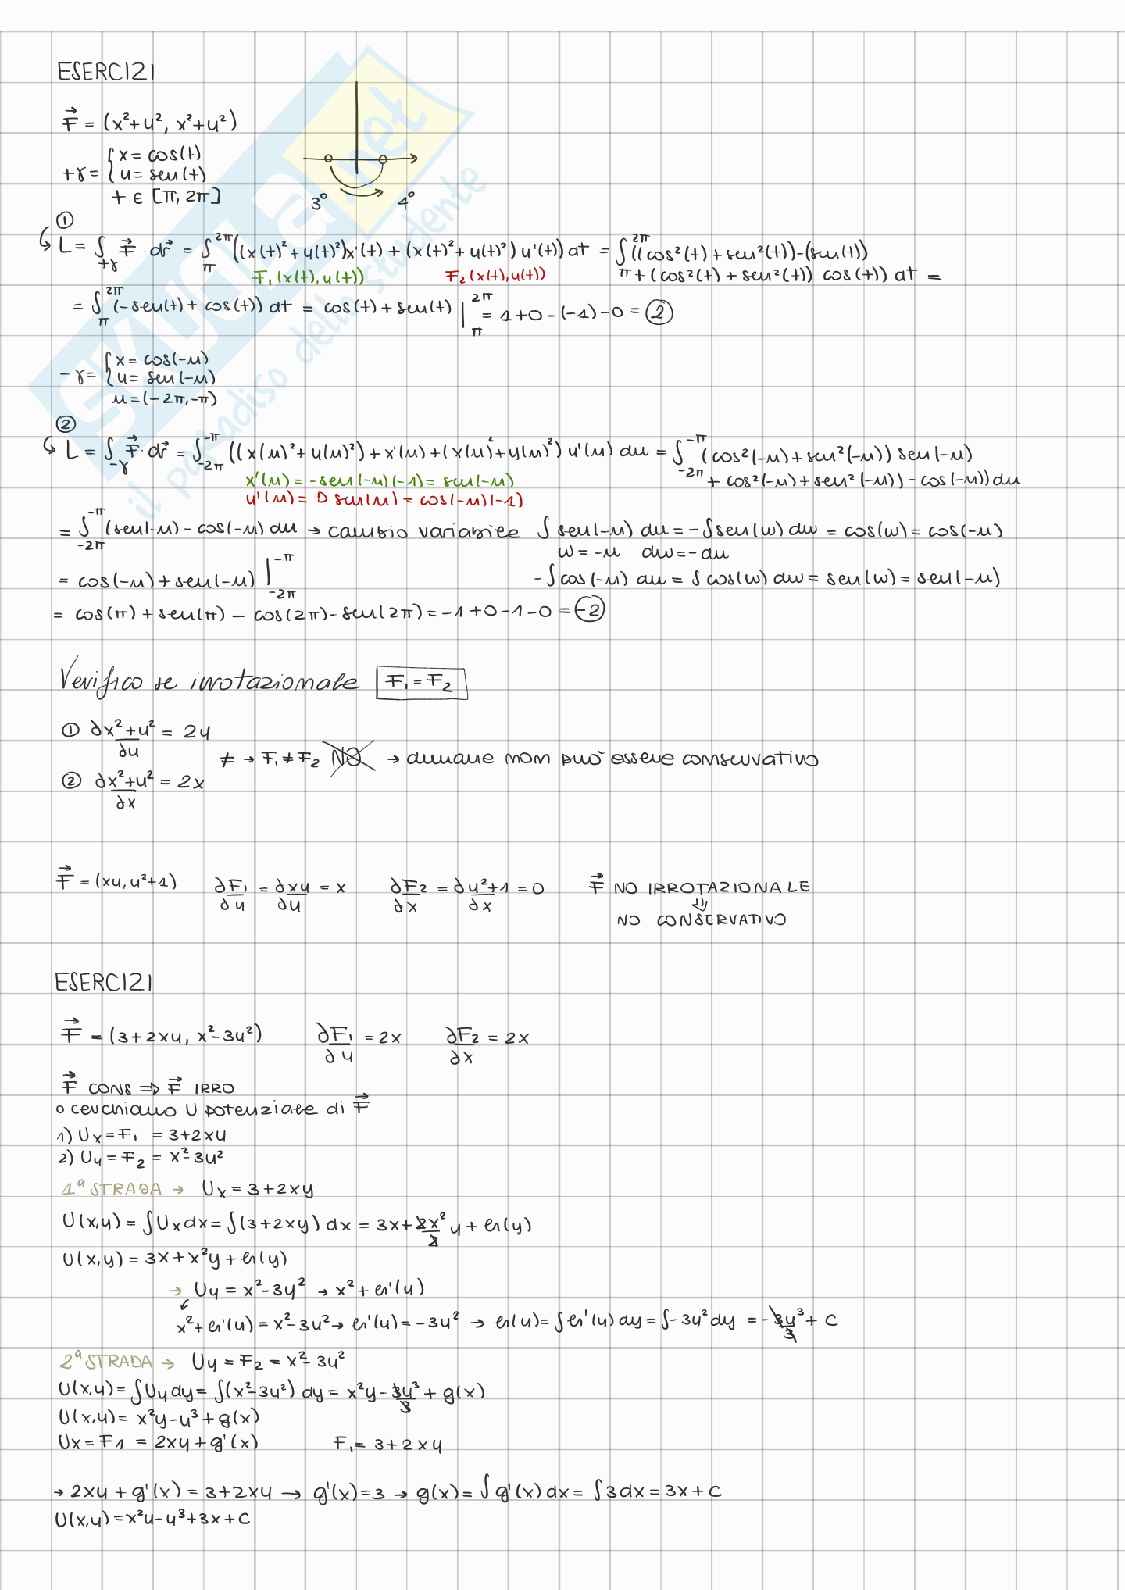 ESERCIZI
F⃗ = (x²+y², x²+y²)
+γ = { x = cos(t)
y = sen(t)
t ∈ [π, 2π]
3° 4°
①
L = ∫+γ F⃗ dr⃗ = ∫π^2π ((x(t)²+y(t)²)x'(t) + (x(t)²+y(t)²) y'(t)) dt = ∫π^2π ((cos²(t) + sen²(t))-(sen(t))
F₁(x(t),y(t)) F₂(x(t),y(t)) + (cos²(t) + sen²(t)) cos(t)) dt =
= ∫π^2π (-sen(t) + cos(t)) dt = cos(t) + sen(t) |π^2π = 1+0-(-1)-0 = ②
-γ = { x = cos(-u)
y = sen(-u)
u = (-2π, -π)
②
L = ∫-γ F⃗·dr⃗ = ∫-2π^-π ((x(u)²+y(u)²)+x'(u)+(x(u)²+y(u)²) y'(u) du = ∫-2π^-π (cos²(-u) + sen²(-u)) sen(-u)
x'(u) = -sen(-u)(-1) = sen(-u) + cos²(-u) + sen²(-u)) - cos(-u)) du
y'(u) = D sen(u) = cos(-u)(-1)
= ∫-2π^-π (sen(-u) - cos(-u) du → cambio variabile ∫ sen(-u) du = -∫sen(w) dw = cos(w) = cos(-u)
w = -u dw = -du
= cos(-u) + sen(-u) |-2π^-π -∫cos(-u) du = ∫cos(w) dw = sen(w) = sen(-u)
= cos(π) + sen(π) - cos(2π) - sen(2π) = -1+0-1-0 = -2
Verifico se irrotazionale F₁ = F₂
① ∂x²+y²/∂y = 2y
≠ → F₁ ≠ F₂ NO → dunque non può essere conservativo
② ∂x²+y²/∂x = 2x
F⃗ = (xy, y²+1) ∂F₁/∂y = ∂xy/∂y = x ∂F₂/∂x = ∂y²+1/∂x = 0 F⃗ NO IRROTAZIONALE
⇓
NO CONSERVATIVO
ESERCIZI
F⃗ = (3+2xy, x²-3y²) ∂F₁/∂y = 2x ∂F₂/∂x = 2x
F⃗ CONS ⇒ F⃗ IRRO
o cerchiamo U potenziale di F⃗
1) Ux = F₁ = 3+2xy
2) Uy = F₂ = x²-3y²
1ª STRADA → Ux = 3+2xy
U(x,y) = ∫Ux dx = ∫(3+2xy) dx = 3x + 2x²/2 y + h(y)
U(x,y) = 3x + x²y + h(y)
→ Uy = x²-3y² → x² + h'(y)
x² + h'(y) = x²-3y² → h'(y) = -3y² → h(y) = ∫h'(y) dy = ∫-3y² dy = -3y³/3 + c
2ª STRADA → Uy = F₂ = x²-3y²
U(x,y) = ∫Uy dy = ∫(x²-3y²) dy = x²y - 3y³/3 + g(x)
U(x,y) = x²y-y³+g(x)
Ux = F1 = 2xy + g'(x) F₁ = 3+2xy
→ 2xy + g'(x) = 3+2xy → g'(x) = 3 → g(x) = ∫g'(x) dx = ∫3dx = 3x + c
U(x,y) = x²y-y³+3x+c
il paradiso dello studente